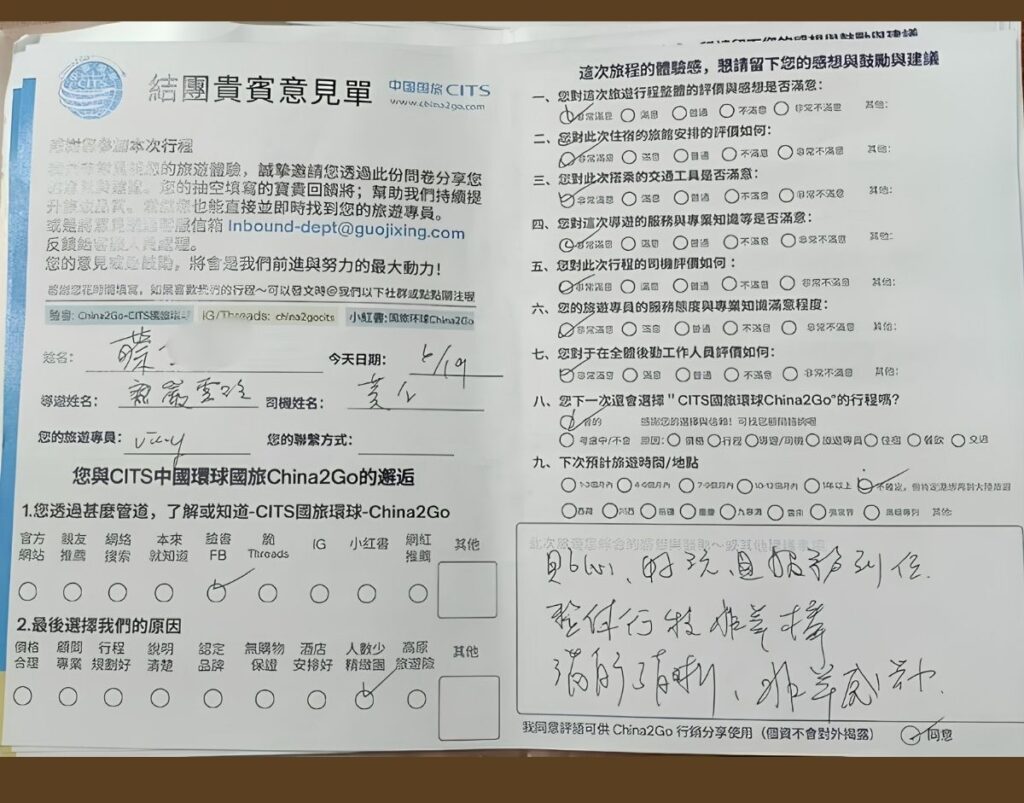 CITS
結團貴賓意見單
中国国旅 CITS
www.china2go.com
感謝您參加本次行程
您的旅遊體驗，誠摯邀請您透過此份問卷分享您
您的抽空填寫的寶貴回饋將；幫助我們持續提
升 您也能直接並即時找到您的旅遊專員。
信箱 Inbound-dept@guojixing.com
反饋給客服人員處理。
您的意見或是鼓勵，將會是我們前進與努力的最大動力！
感謝您花時間填寫，如果喜歡我們的行程～可以發文時@我們以下社群或點點關注喔
臉書: China2Go-CITS國旅環球
IG/Threads: china2gocits
小紅書:国旅环球China2Go
姓名：
今天日期：
導遊姓名：
司機姓名：黃
您的旅遊專員：
您的聯繫方式：
您與CITS中國環球國旅China2Go的邂逅
1.您透過甚麼管道，了解或知道-CITS國旅環球-China2Go
官方網站 親友推薦 網絡搜索 本來就知道 臉書FB 脆Threads IG 小紅書 網紅推薦 其他
2.最後選擇我們的原因
價格合理 顧問專業 行程規劃好 說明清楚 認定品牌 無購物保證 酒店安排好 人數少精緻團 高原旅遊險 其他
這次旅程的體驗感，懇請留下您的感想與鼓勵與建議
一、您對這次旅遊行程整體的評價與感想是否滿意：
非常滿意 滿意 普通 不滿意 非常不滿意 其他:
二、您對此次住宿的旅館安排的評價如何：
非常滿意 滿意 普通 不滿意 非常不滿意 其他:
三、您對此次搭乘的交通工具是否滿意：
非常滿意 滿意 普通 不滿意 非常不滿意 其他:
四、您對這次導遊的服務與專業知識等是否滿意：
非常滿意 滿意 普通 不滿意 非常不滿意 其他:
五、您對此次行程的司機評價如何：
非常滿意 滿意 普通 不滿意 非常不滿意 其他:
六、您的旅遊專員的服務態度與專業知識滿意程度：
非常滿意 滿意 普通 不滿意 非常不滿意 其他:
七、您對于在全體後勤工作人員評價如何：
非常滿意 滿意 普通 不滿意 非常不滿意 其他:
八、您下一次還會選擇 " CITS國旅環球China2Go"的行程嗎?
會的 感謝您的選擇與信賴!
考慮中/不會 原因： 價格 行程 導遊/司機 旅遊專員 住宿 餐飲 交通
九、下次預計旅遊時間/地點
1-3個月內 4-6個月內 7-9個月內 10-12個月內 1年以上 不確定，
西藏 川西 新疆 重慶 九寨溝 雲南 張家界 其他:
貼心、好玩 服務到位
整体行程推荐
我同意評語可供 China2Go 行銷分享使用（個資不會對外揭露） 同意